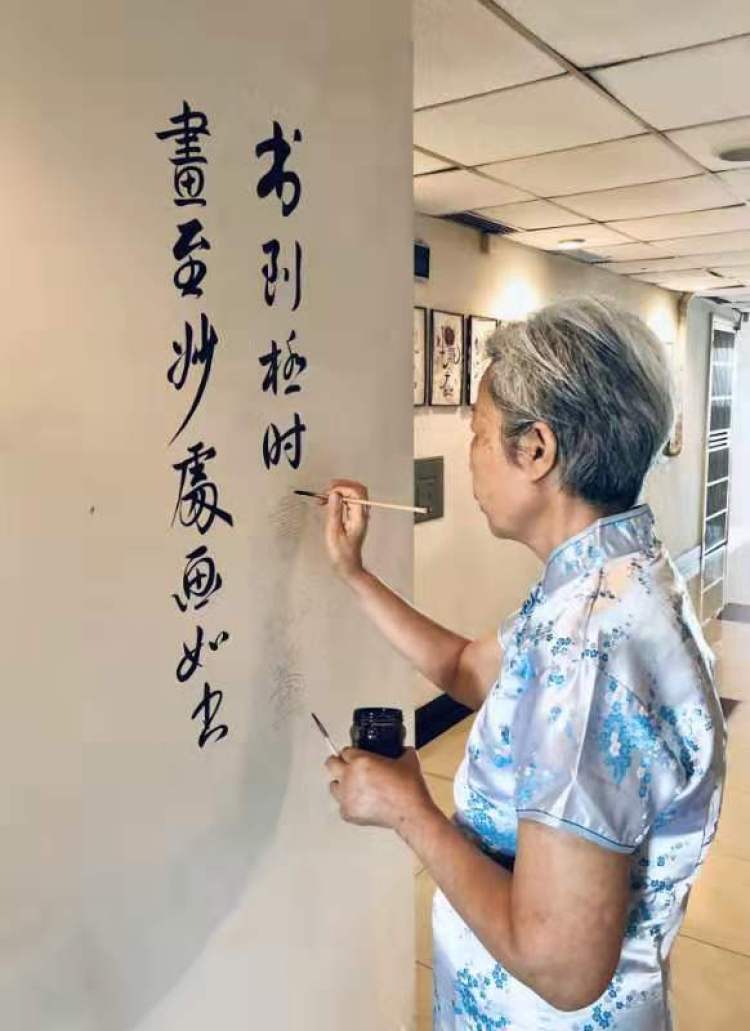 书到極时
畫至妙處画如书